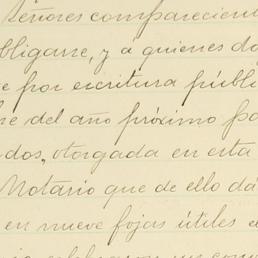 Señores comparecien
bligarse, y a quienes do
por escritura públi
re del año próximo pa
dos, otorgada en esta
Notario que de ello da
en nueve fojas útiles